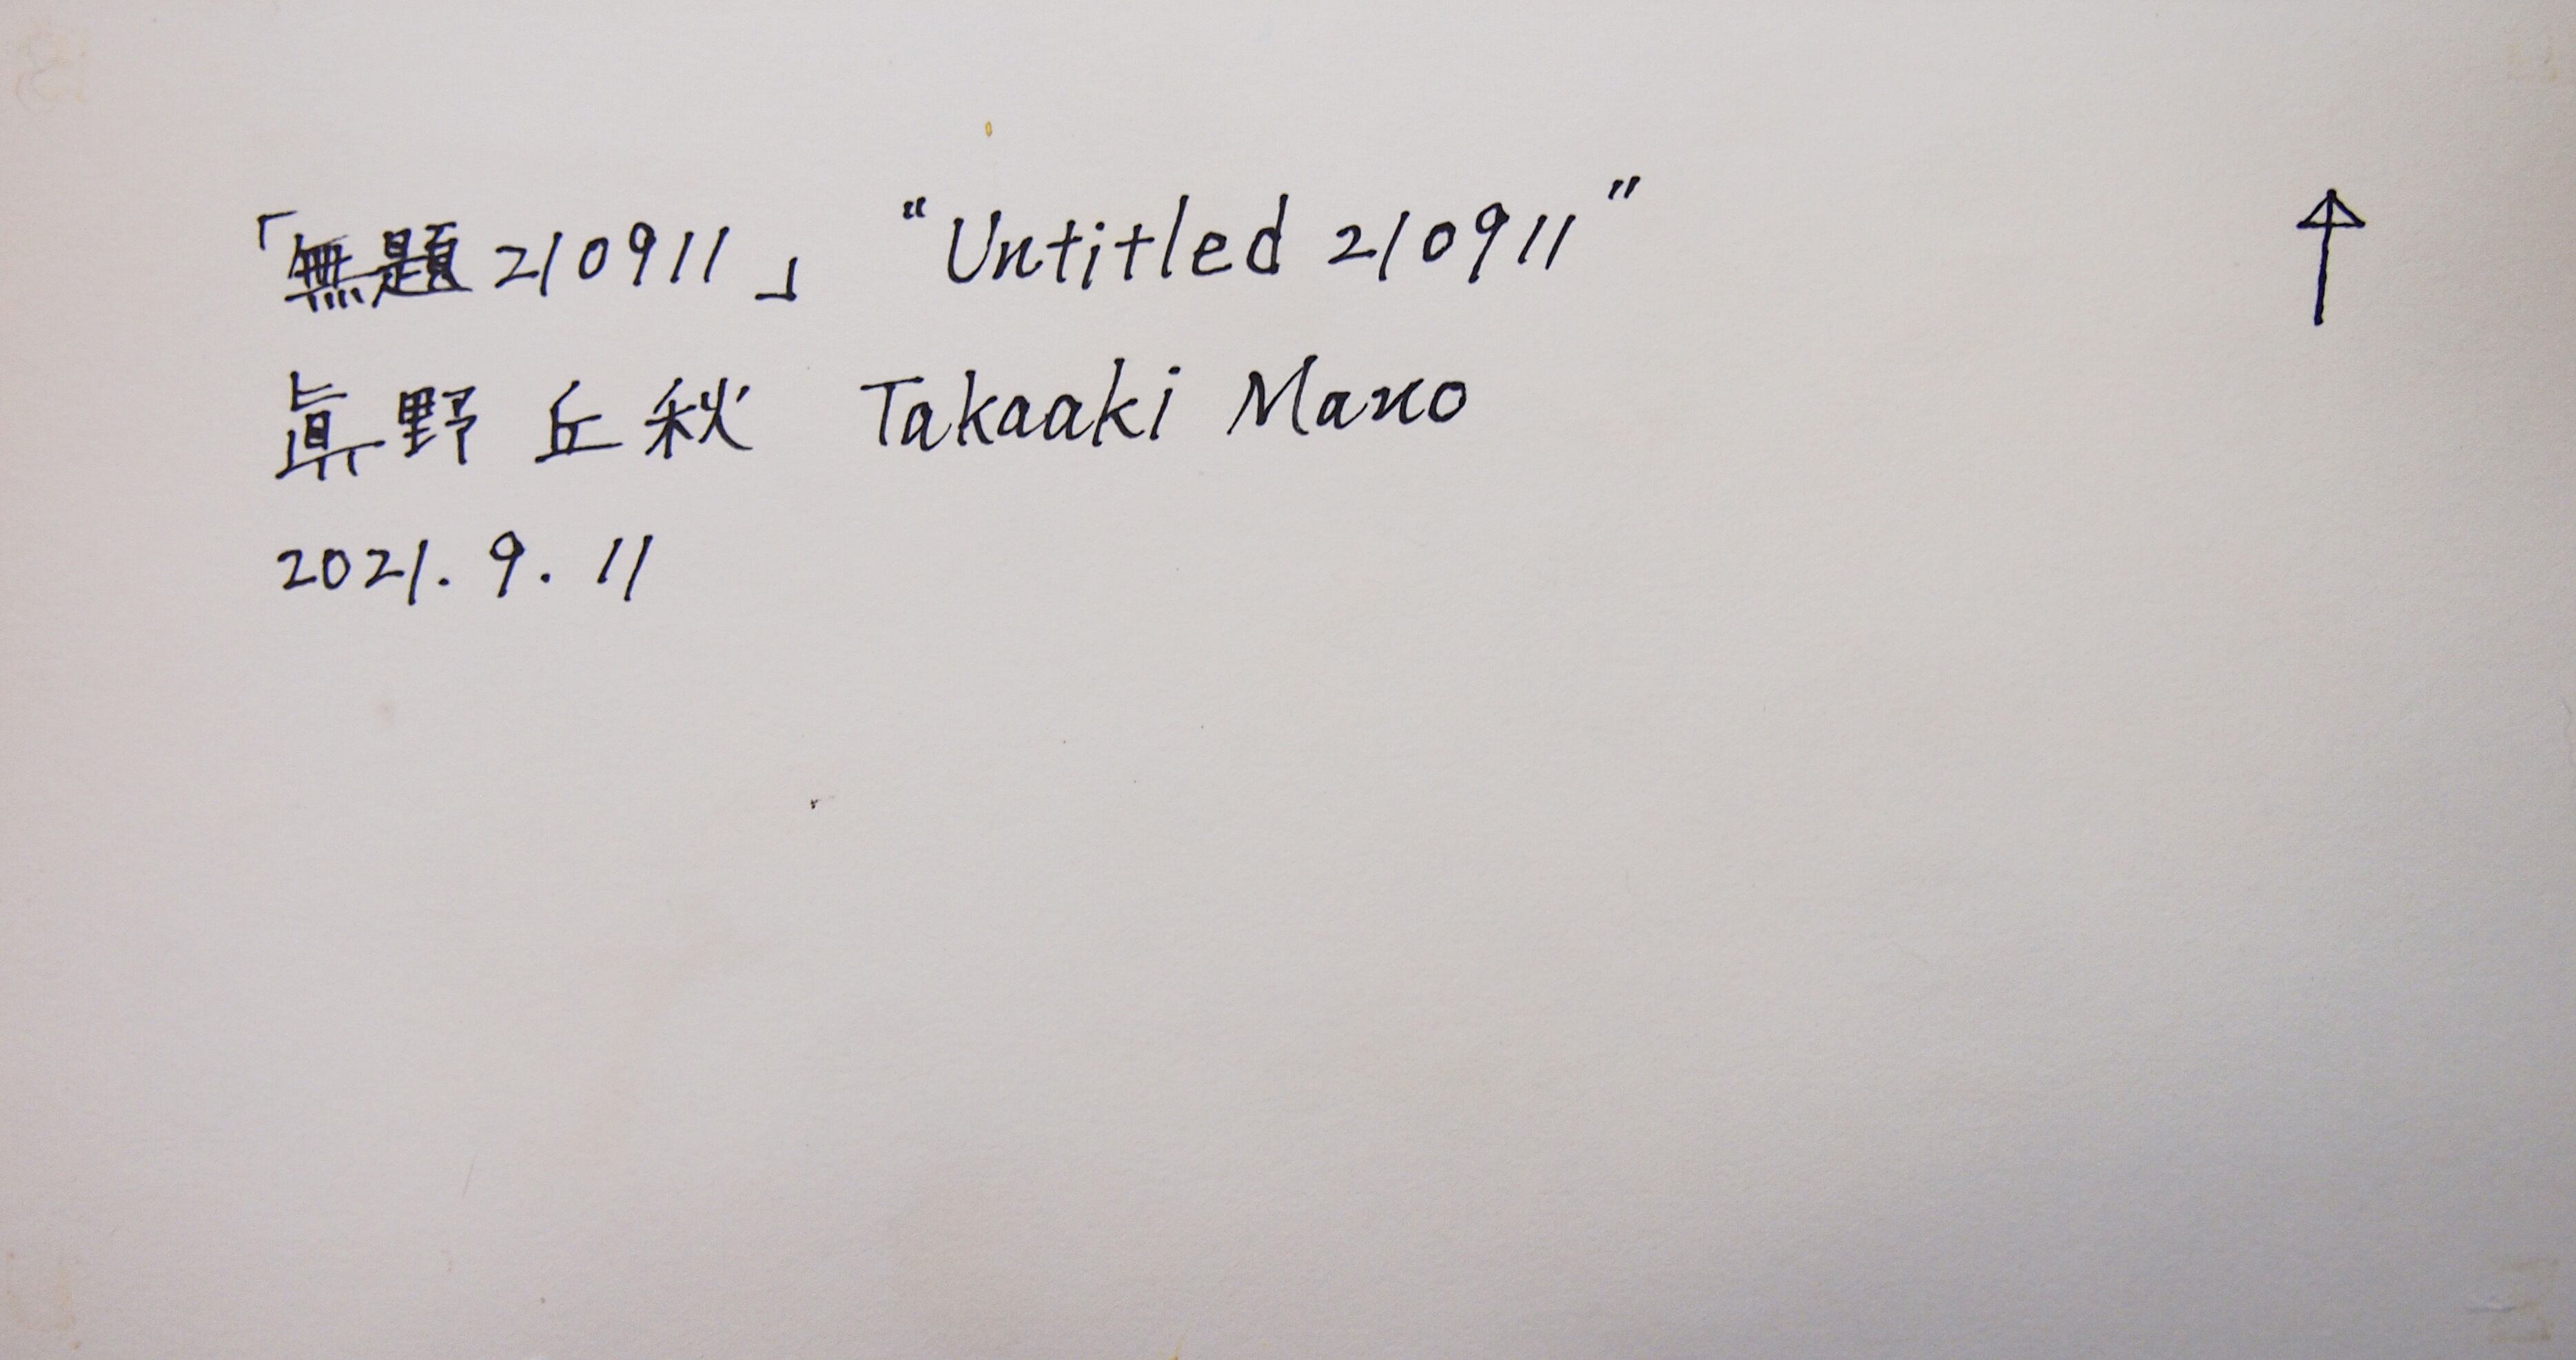 「無題210911」 “Untitled 210911”
眞野 丘秋 Takaaki Mano
2021. 9. 11